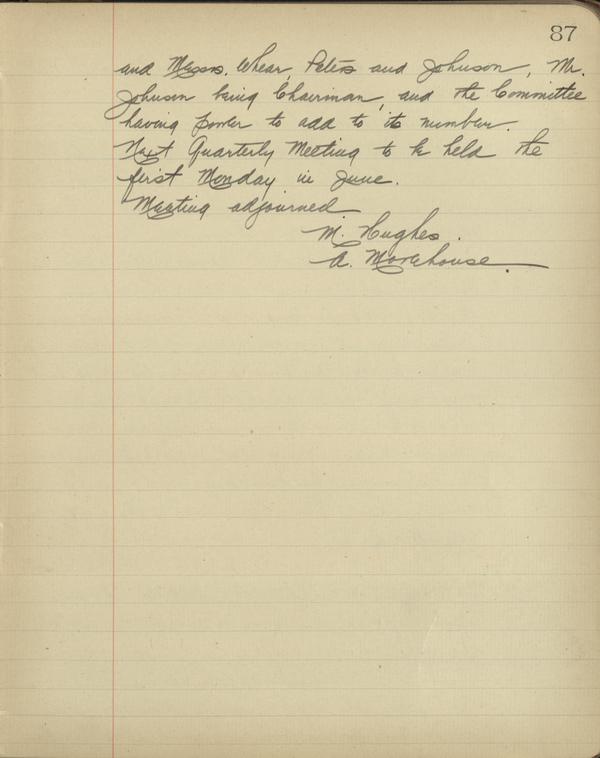 87
and Messrs. Whear, Peters and Johnson, Mr.
Johnson being Chairman, and the Committee
having power to add to its number.
Next Quarterly Meeting to be held the
first Monday in June.
Meeting adjourned
M. Hughes.
A. Morehouse.